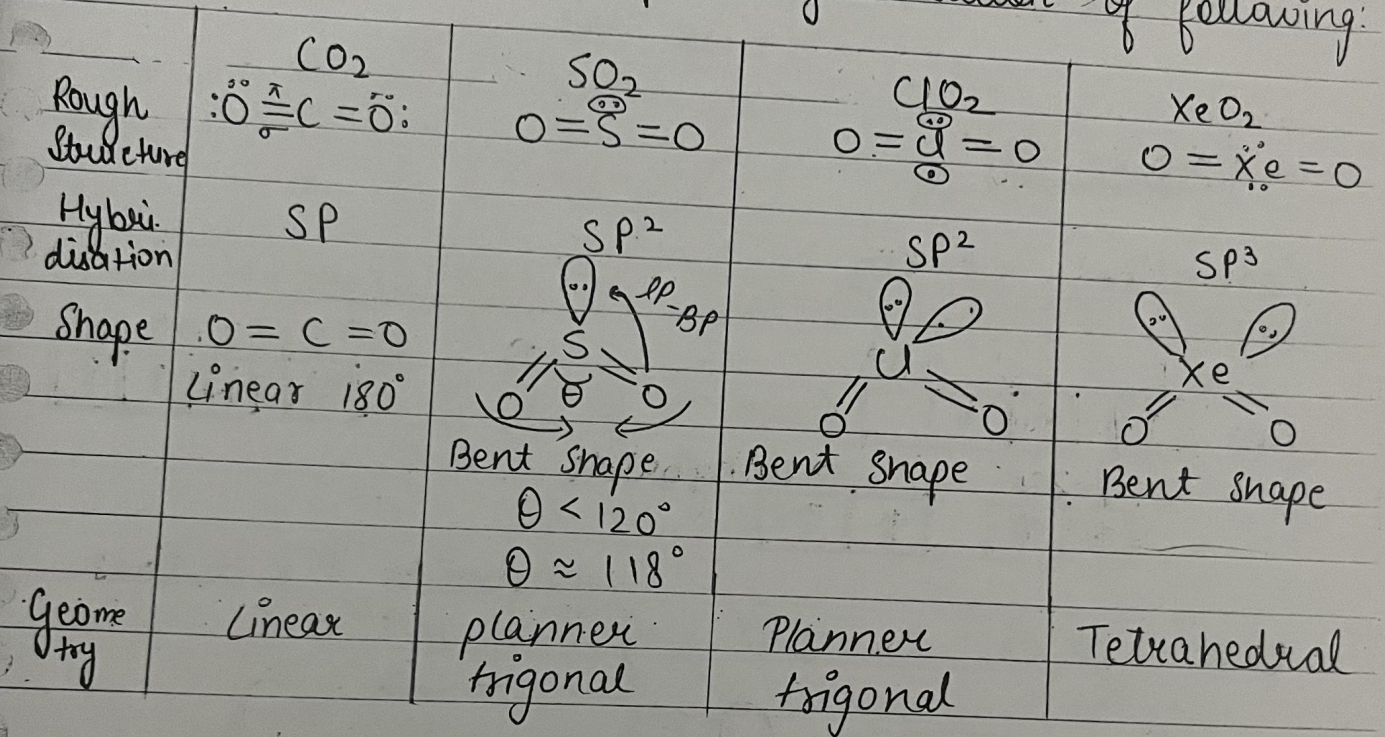 of following:
CO₂
SO₂
ClO₂
XeO₂
Rough
Structure
:Ö=C=Ö:
π
σ
O=S=O
O=Cl=O
O=Ẍe=O
Hybri.
disation
SP
SP²
SP²
SP³
Shape
O=C=O
Linear 180°
lp-BP
S
O θ O
Bent Shape
θ<120°
θ≈118°
Cl
O O
Bent Shape
Xe
O O
Bent Shape
Geome
try
Linear
planner
trigonal
Planner
trigonal
Tetrahedral